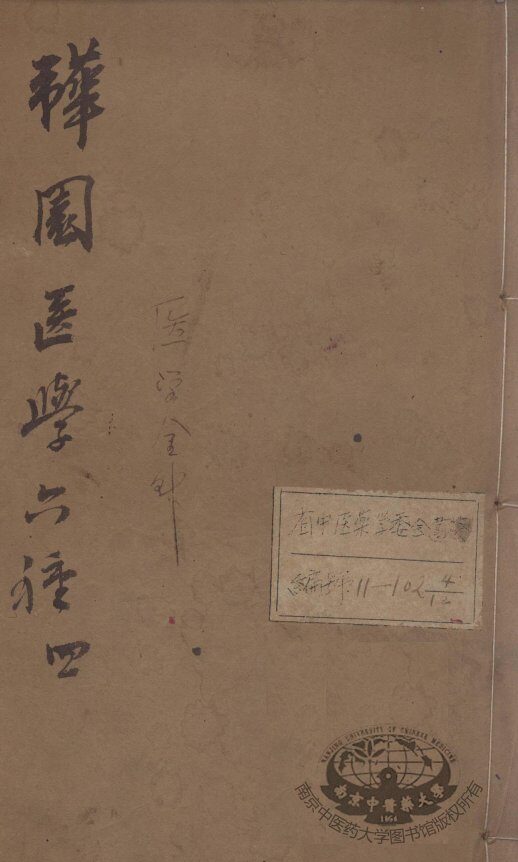 韡園医學六種 四
医学金针
省中医藥学委会
編號 11—102 4/12
NANJING UNIVERSITY OF CHINESE MEDICINE
南京中醫藥大學
1954
南京中医药大学图书馆版权所有